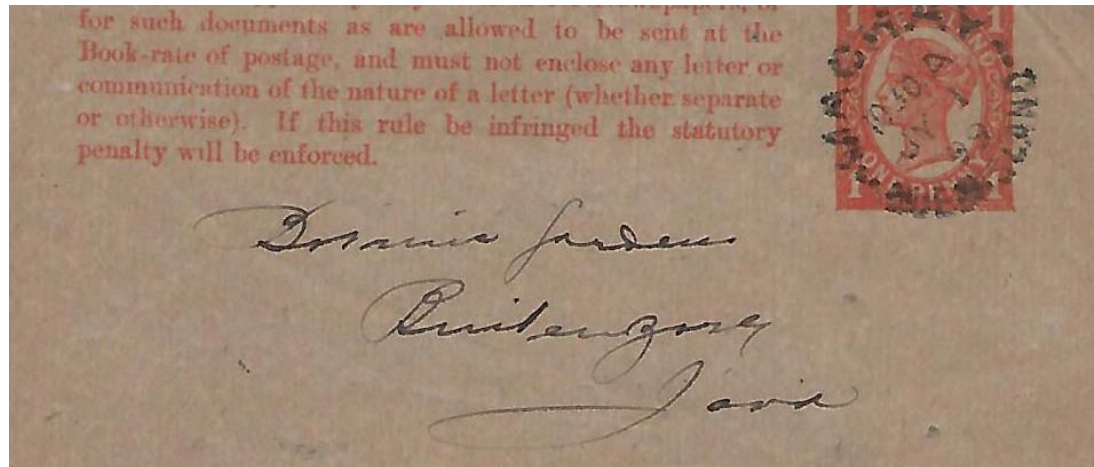 for such documents as are allowed to be sent at the
Book-rate of postage, and must not enclose any letter or
communication of the nature of a letter (whether separate
or otherwise). If this rule be infringed the statutory
penalty will be enforced.
ONE PENNY
1 1
Botanic Gardens
Buitenzorg
Java